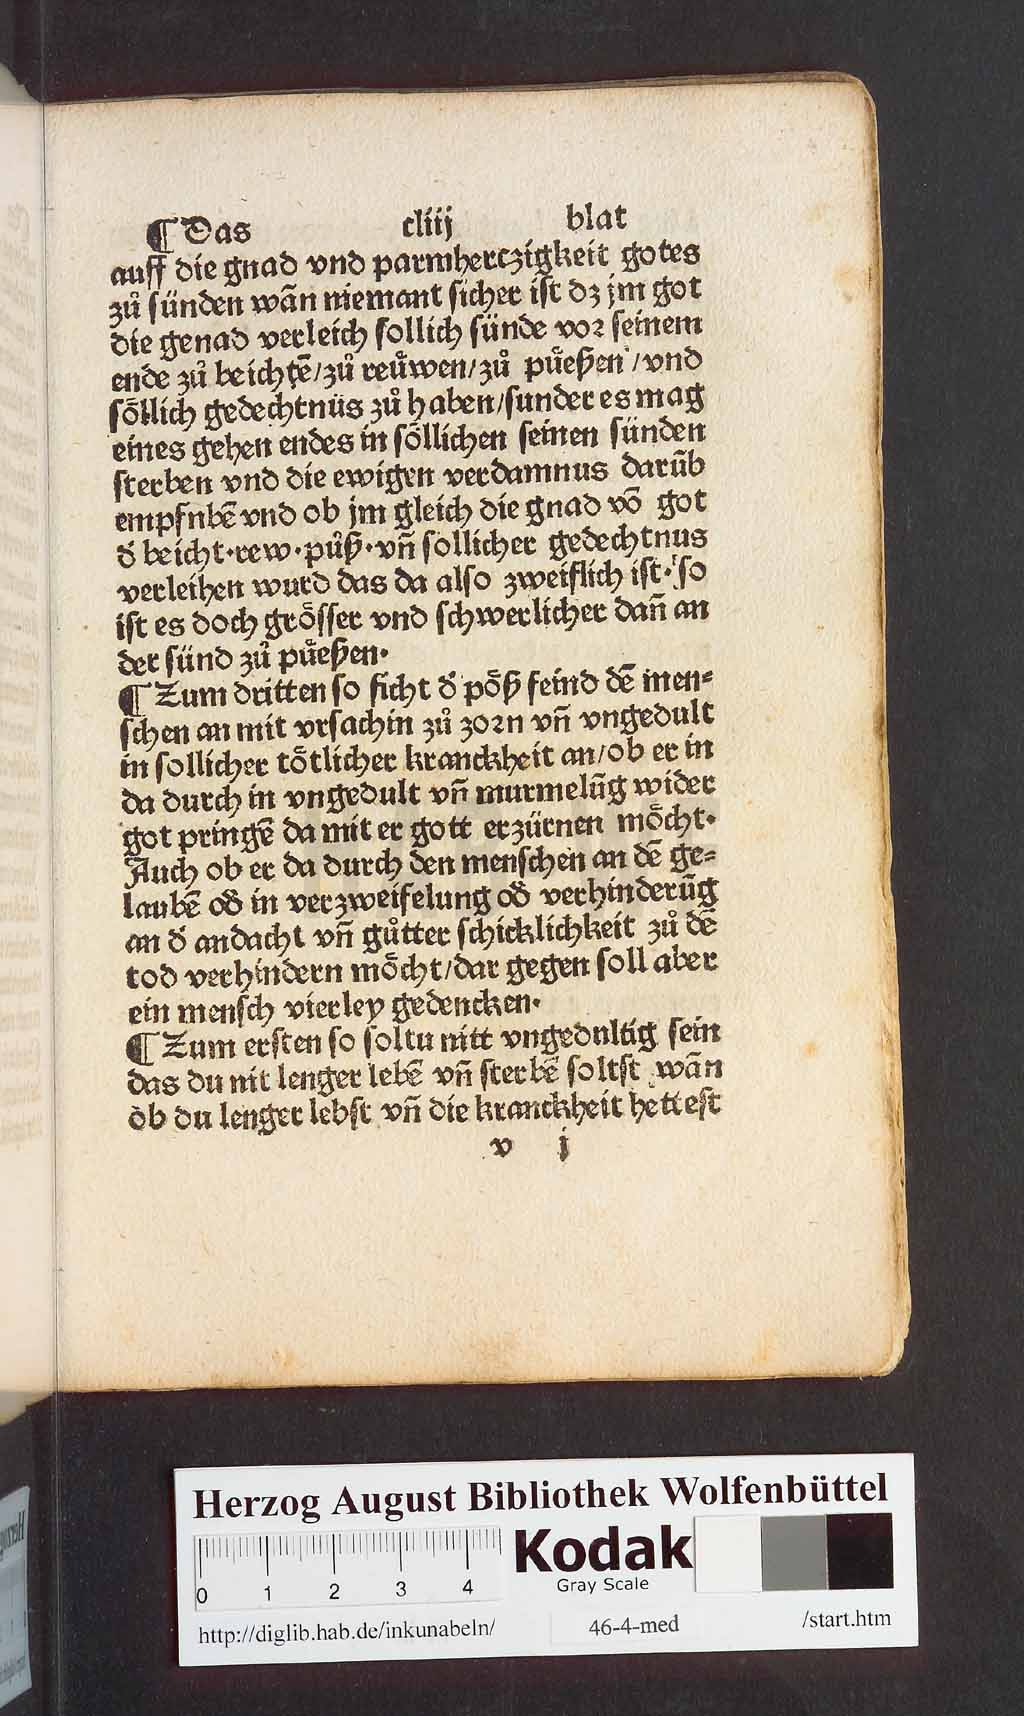 ¶ Das cliij blat
auff die gnad vnd parmhertzigkeit gotes
zů sünden wãn niemant sicher ist dz jm got
die genad verleich sollich sünde vor seinem
ende zů beichtẽ/zů reuͤwen/zů puͤeßen/vnd
soͤllich gedechtnüs zů haben/sunder es mag
eines gehen endes in soͤllichen seinen sünden
sterben vnd die ewigen verdamnus darũb
empfnbẽ vnd ob jm gleich die gnad võ got
đ beicht·rew·půß·vñ sollicher gedechtnus
verleihen wurd das da also zweiflich ist·so
ist es doch groͤsser vnd schwerlicher dañ an
der sünd zů puͤeßen·
¶ Zum dritten so ficht đ poͤß feind dẽ men⸗
schen an mit vrsachin zů zorn vñ vngedult
in sollicher toͤtlicher kranckheit an/ob er in
da durch in vngedult vñ murmelũg wider
got pringẽ da mit er gott erzürnen moͤcht·
Auch ob er da durch den menschen an dẽ ge⸗
laubẽ ođ in verzweifelung ođ verhinderũg
an đ andacht vñ gůtter schicklichkeit zů dẽ
tod verhindern moͤcht/dar gegen soll aber
ein mensch vierley gedencken·
¶ Zum ersten so soltu nitt vngedultig sein
das du nit lenger lebẽ vñ sterbẽ soltst wãn
ob du lenger lebst vñ die kranckheit hettest
v j
Herzog August Bibliothek Wolfenbüttel
0 1 2 3 4
Kodak
Gray Scale
http://diglib.hab.de/inkunabeln/ 46-4-med /start.htm